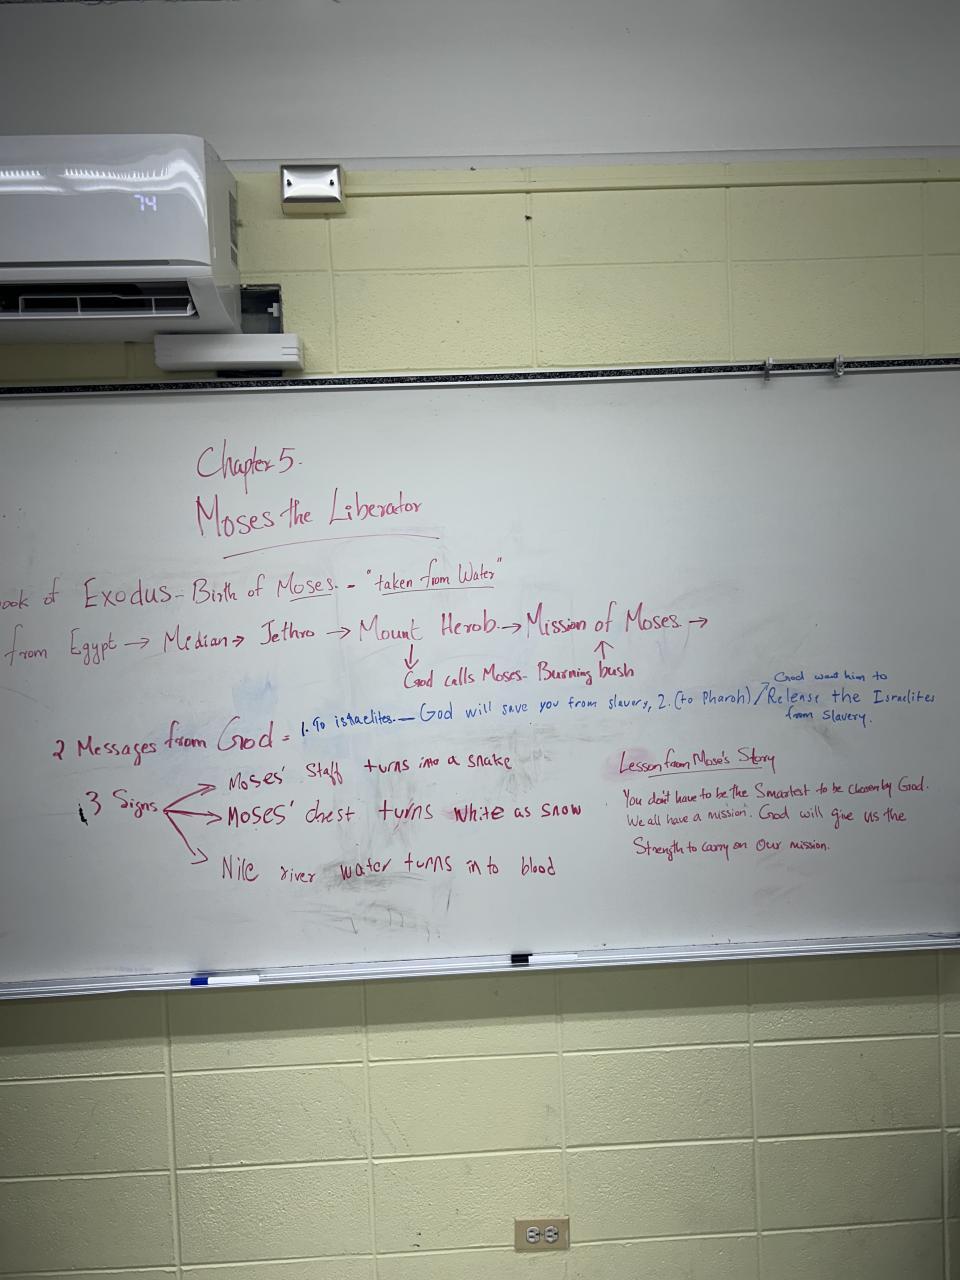 74
Chapter 5.
Moses the Liberator
ook of Exodus - Birth of Moses. - "taken from Water"
from Egypt → Median → Jethro → Mount Herob. → Mission of Moses. →
↓ ↑
God calls Moses - Burning bush
God want him to
2 Messages from God = 1. To israelites. — God will save you from slavery, 2. (to Pharoh) / Release the Israelites
from slavery.
3 Signs
Moses' staff turns into a snake
Moses' chest turns white as snow
Nile river water turns in to blood
Lesson from Mose's Story
You don't have to be the Smartest to be chosen by God.
We all have a mission. God will give us the
Strength to carry on Our mission.